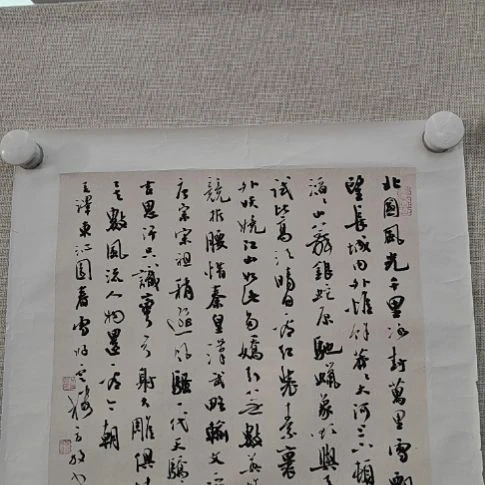 北國風光千里冰封萬里雪飄
望長城內外惟餘莽々大河上下頓
滔々山舞銀蛇原馳蠟象欲與天
試比高須晴日看紅裝素裹
外妖嬈江山如此多嬌引無數英
競折腰惜秦皇漢武略輸文
唐宗宋祖稍遜風騷一代天驕
吉思汗只識彎弓射大雕俱往
矣數風流人物還看今朝
毛澤東沁園春雪